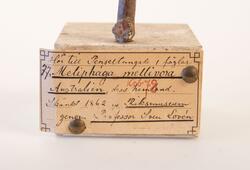 Hör till Penseltungat. i fågels.
37. Meliphaga mellivora
Australien, dess hemland.
Skänkt 1862 af Riksmuseum
genom Professor Sven Lovén